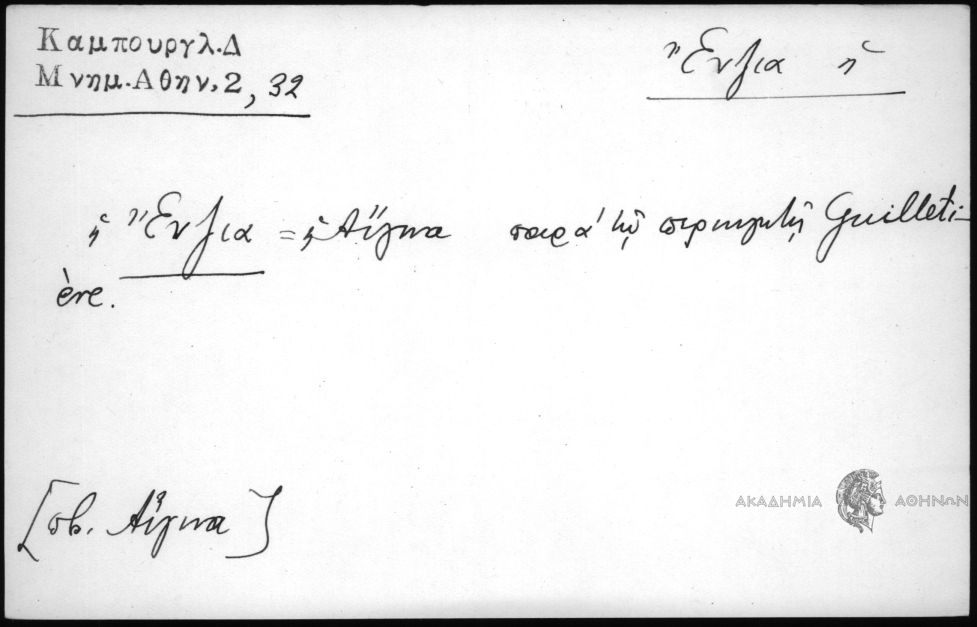 Καμπουργλ.Δ
Μνημ.Αθην.2, 32
Ἔνζια ἡ
ἡ Ἔνζια = ἡ Αἴγινα παρὰ τῷ περιηγητῇ Guilleti-
ère.
[πβ. Αἴγινα]
ΑΚΑΔΗΜΙΑ ΑΘΗΝΩΝ